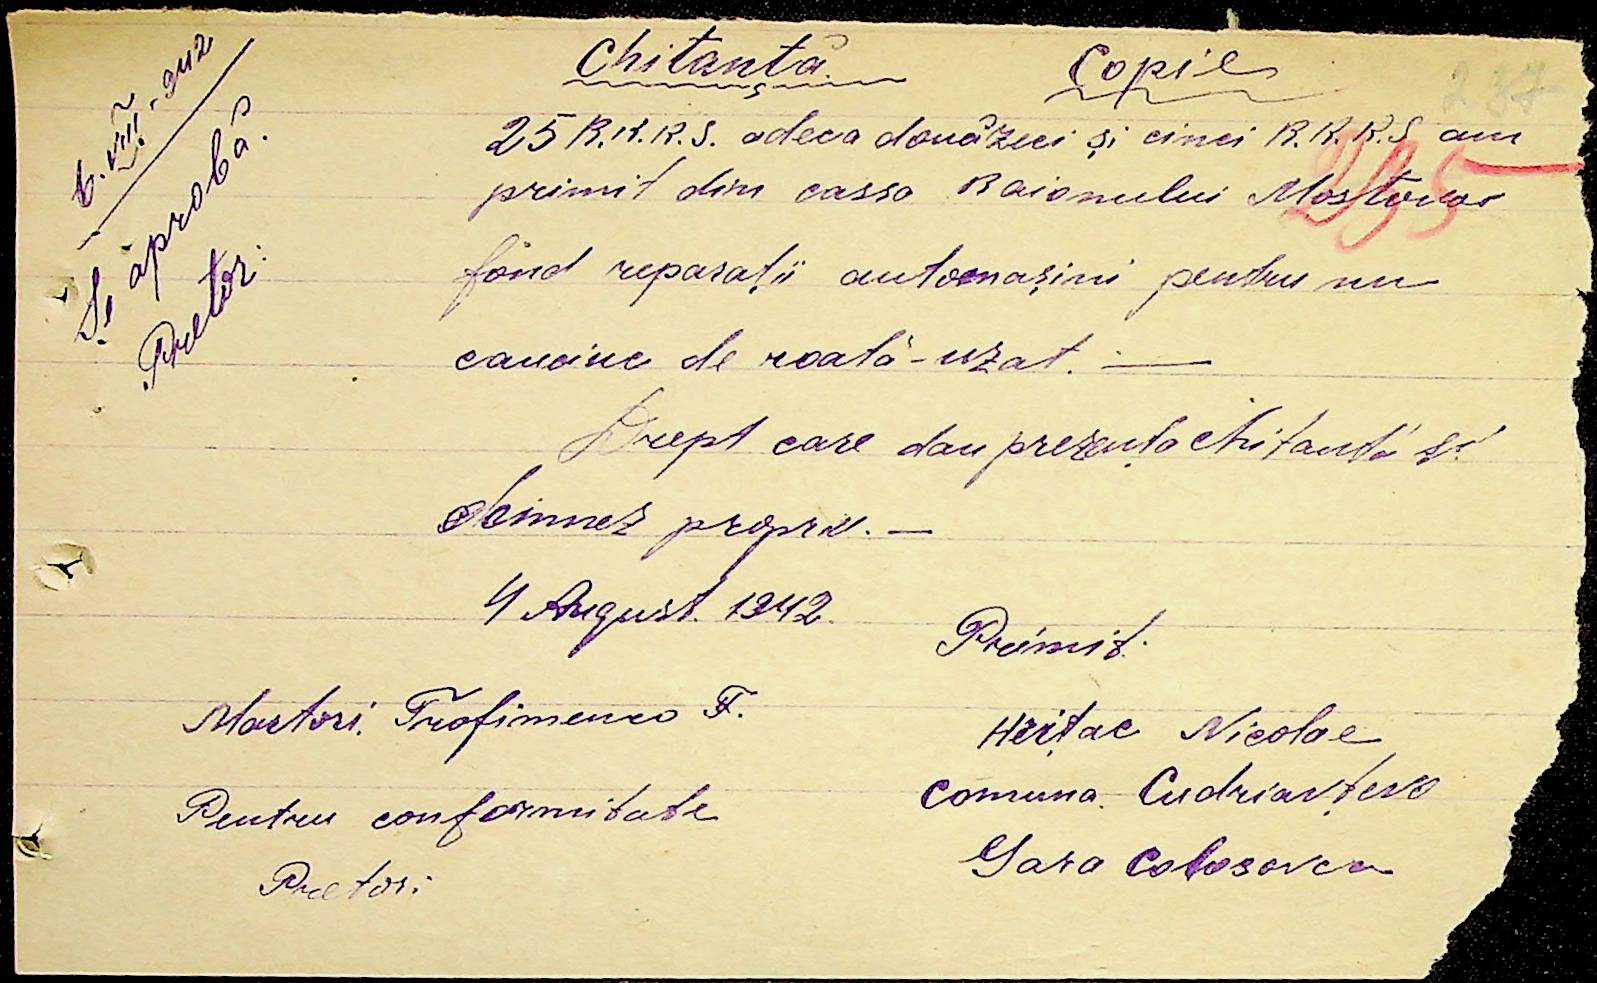 6.VIII.942
Se aprobă.
Pretor:
Chitanță. Copie
237
25 R.K.K.S. adeca douăzeci și cinci R.K.K.S. am
295
primit din cassa Raionului Mostovoi
fond reparații automașini pentru un
cauciuc de roată-uzat. —
Drept care dau prezenta chitanță și
semnez propriu. —
4 August. 1942.
Primit.
Martori. Trofimenco F.
Herțac Nicolae
comuna. Cudriavțevo
Pentru conformitate
Gara Colosovca
Pretor: